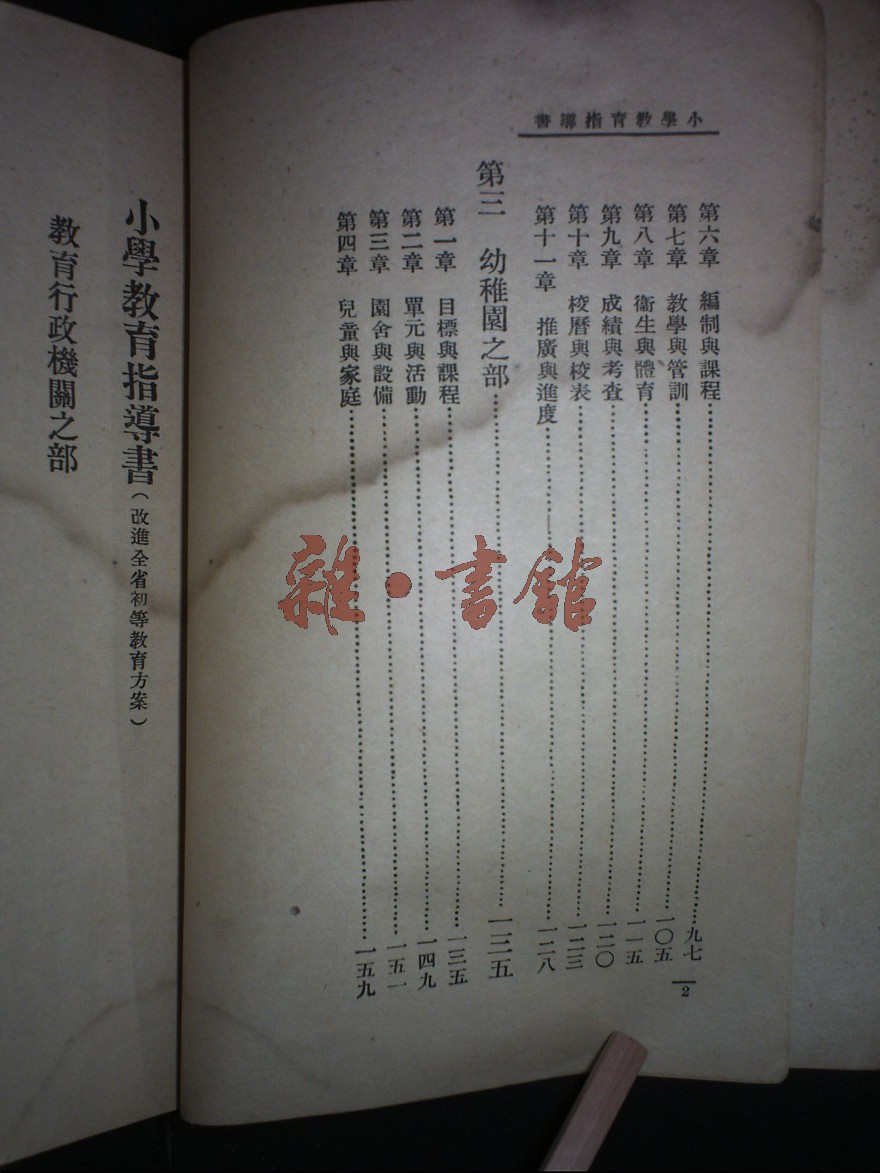 小學教育指導書
第六章 編制與課程……九七
第七章 教學與管訓……一〇五
第八章 衛生與體育……一一五
第九章 成績與考查……一二〇
第十章 校曆與校表……一二三
第十一章 推廣與進度……一二八
第三 幼稚園之部……一三五
第一章 目標與課程……一三五
第二章 單元與活動……一四九
第三章 園舍與設備……一五一
第四章 兒童與家庭……一五九
2
小學教育指導書(改進全省初等教育方案)
教育行政機關之部
雜·書館